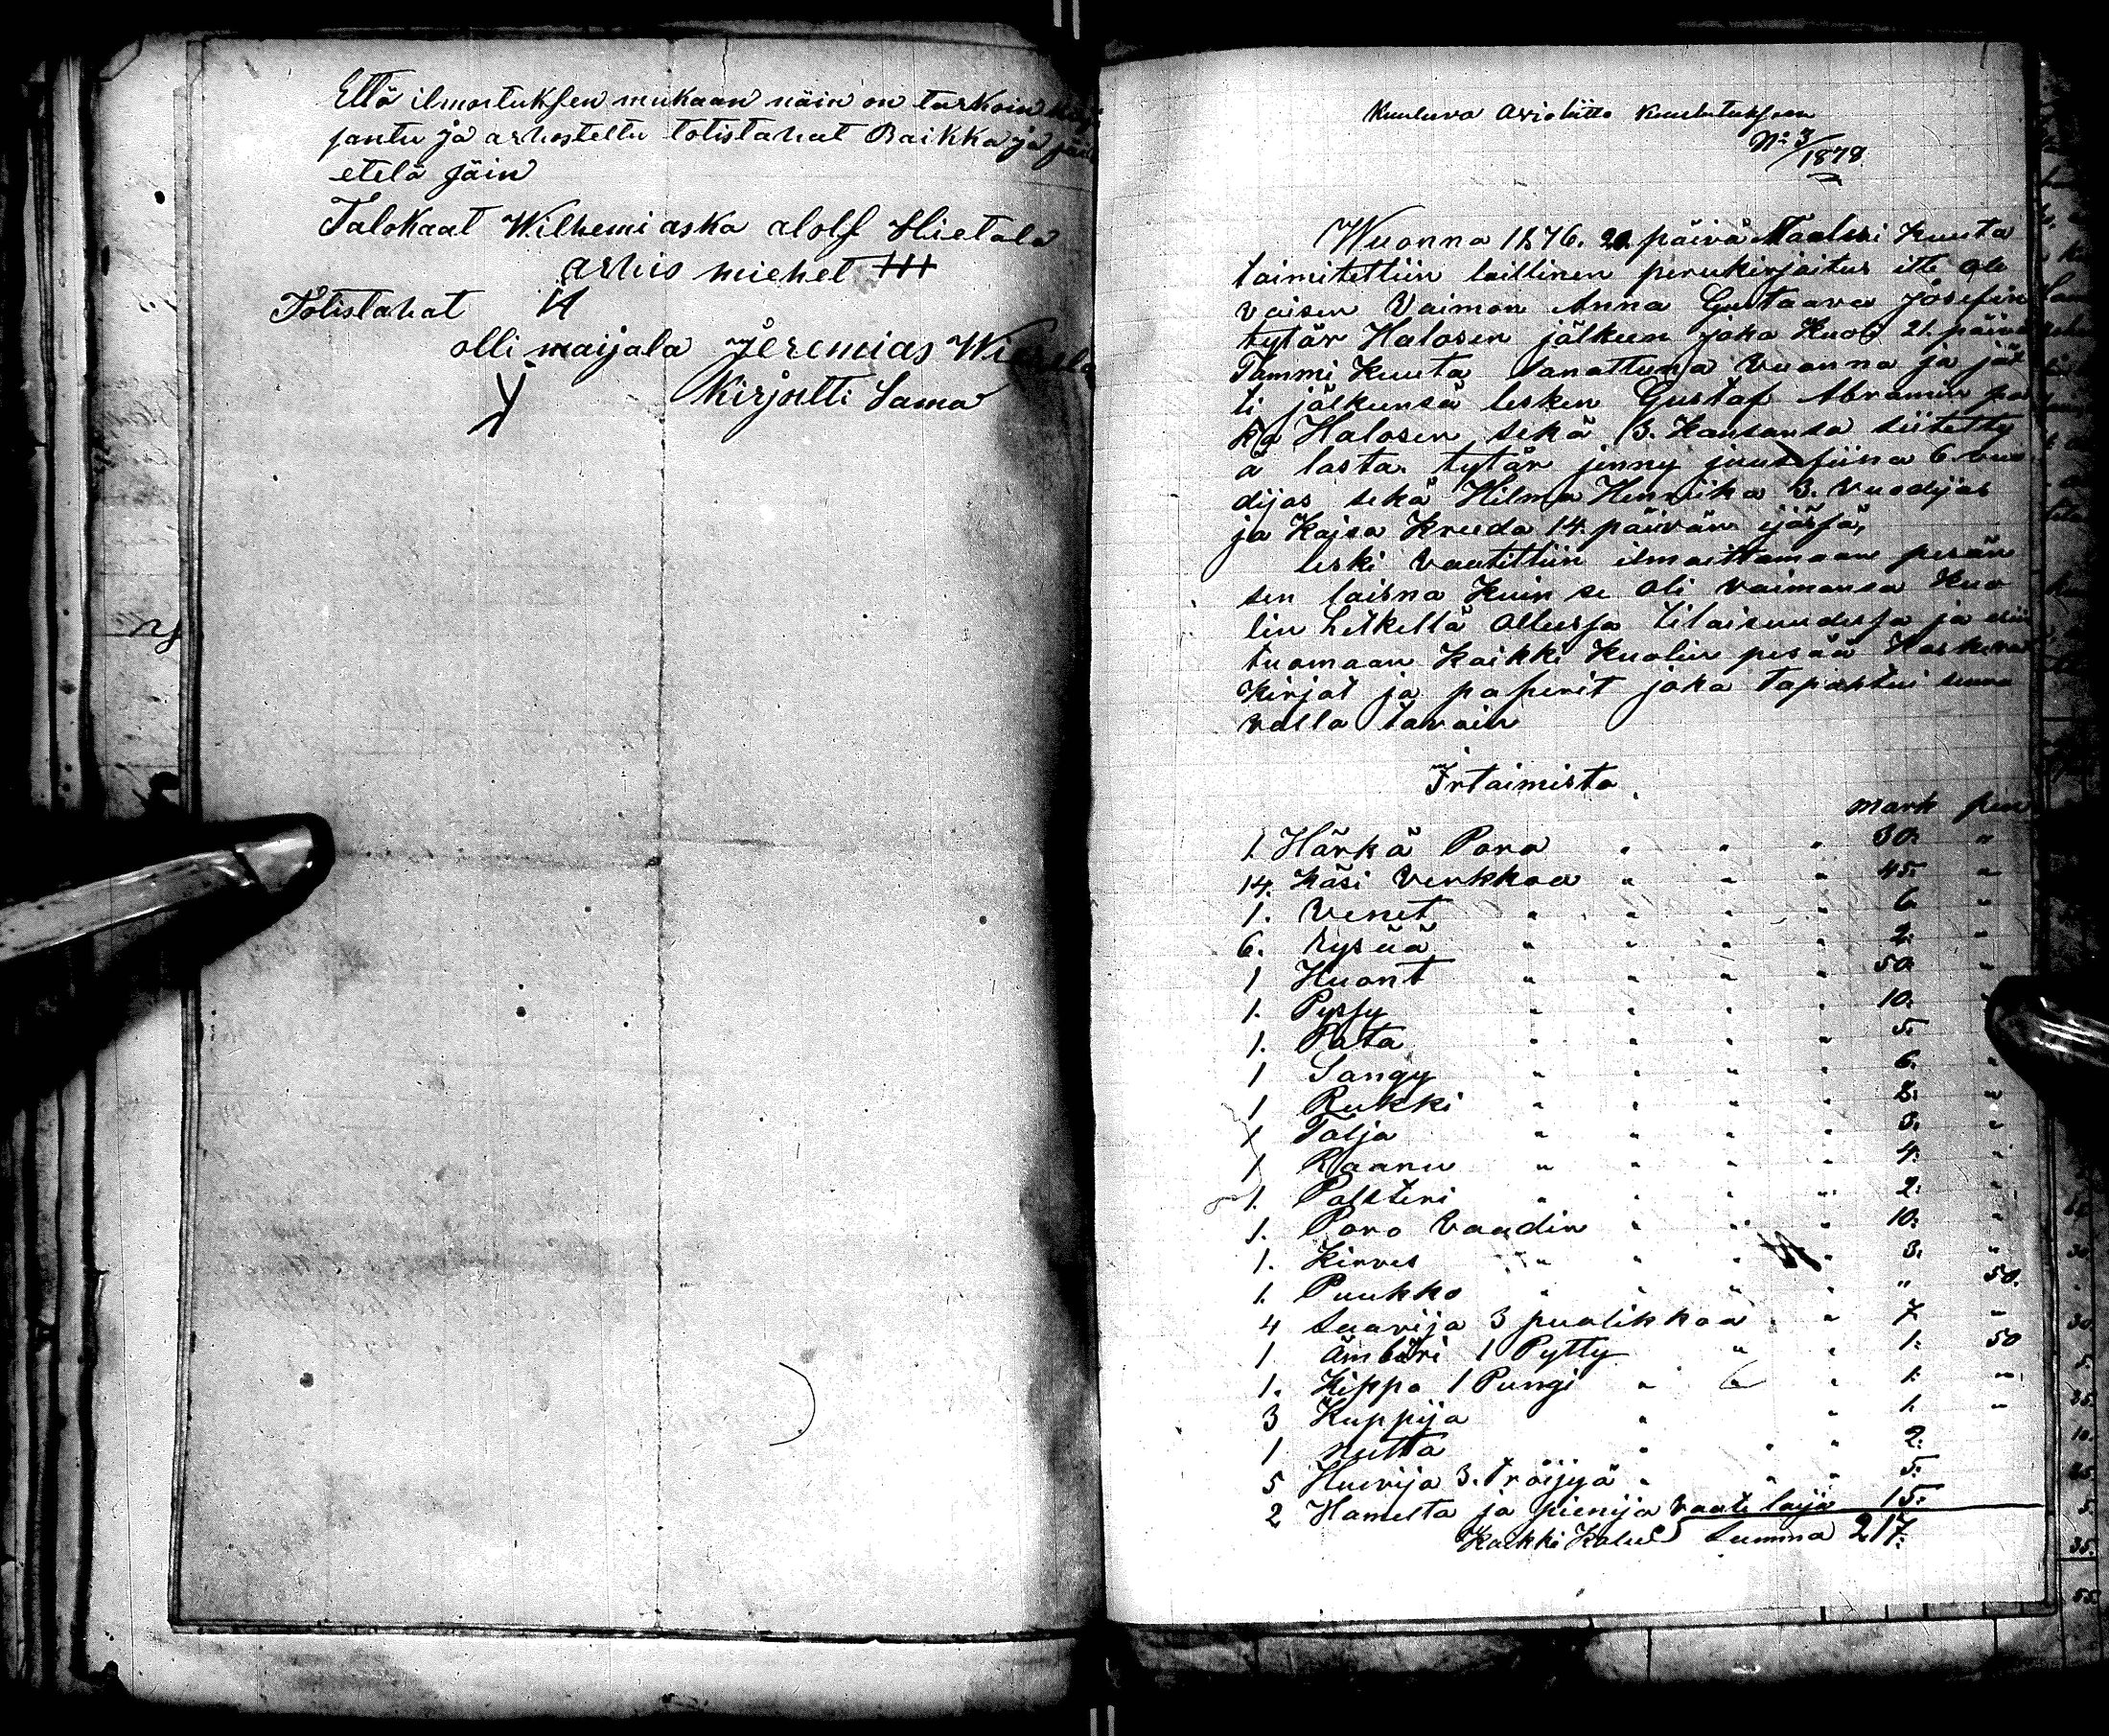 Että ilmoituksen mukaan näin on tarkoin
jantu ja arhosteltu totistahat Baikka ja
etelä jäin
Talokaat Wilhemi aska alolf Hietala
arhio miehet +++
Totistahat
olli maijala Jeremias
Kirjoitti Sama
Kuuluva Avioliitto Kuulutukseen
No 3/1878
Wuonna 1876. 20. päivä Maalis Kuuta
toimitettiin laillinen perukirjoitus itte ole
vaisen Vaimon Anna Gustaava Josefin
tytär Halosen jälkeen joka Kuoli 21. päivä
Tammi Kuuta Sanattuna Vuonna ja jät
ti jälkeensä lesken Gustaf Abramin poi
ka Halosen, sekä 3. Kansansa siitetty
ä lasta. tytär jenny juusefiina 6. vuo
dijas sekä Hilma Henriika 3. Vuodijas
ja Kajsa Kreeda 14. päivän ijässä,
leski Vaatittiin ilmoittamaan pesän
sen laisna Kuin se oli vaimonsa Kuo
lin hetkellä ollussa tilaisuudessa ja
tuomaan Kaikki Kuolin pesää Koskevat
Kirjat ja paperit joka tapahtui seura
valla tavoin
Irtaimista
mark pen
1. Härkä Poro " " " 30. "
14. Käsi Verkkoa " " " 45. "
1. Venet " " " " 6 "
6. rysää " " " " 2. "
1 Kuont " " " " 50 "
1. Pyssy " " " " 10. "
1. Pata " " " " 5.
1 Sangy " " " " 6. "
1 Rukki " " " " 2. "
1 Talja " " " " 3. "
1 Raanu " " " " 4. "
1. Polsteri " " " " 2. "
1. Poro Vaadin " " " 10. "
1. Kirves " " " " 3. "
1. Puukko " " " " " 50.
4 Saavija 3 puolikkoa " " 7 "
1 Ämbäri 1 Pytty " " 1. 50
1. Kippo 1 Pungi " " " 1. "
3 Kuppija " " 1. "
1 nutta " " " 2.
5 Huivija 3. tröijyä " " " 5.
2 Hametta ja pienija Vaate laija 15.
Kaikki Kalut Summa 217.